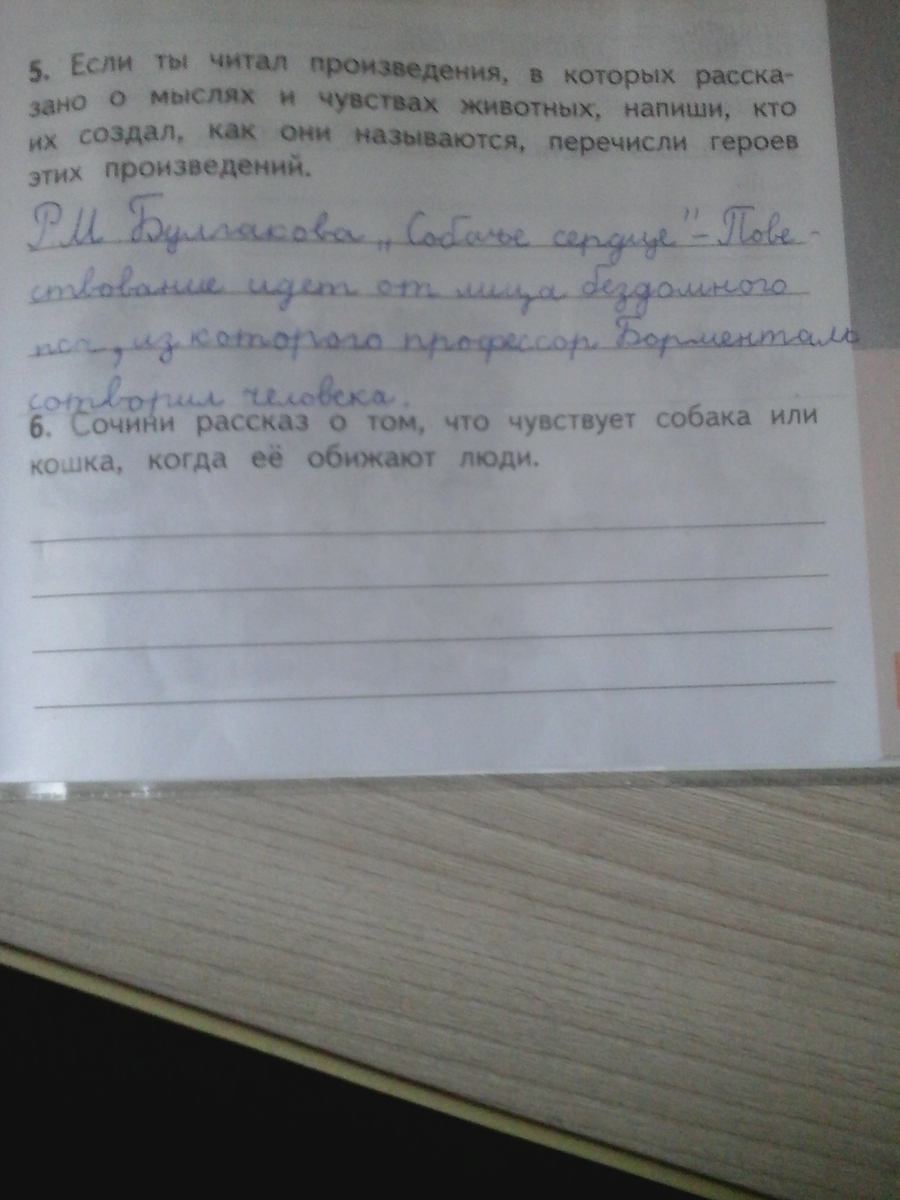 5. Если ты читал произведения, в которых расска-
зано о мыслях и чувствах животных, напиши, кто
их создал, как они называются, перечисли героев
этих произведений.
РМ Булгакова „Собачье сердце" – Пове-
ствование идет от лица бездомного
пса, из которого профессор Борменталь
сотворил человека.
6. Сочини рассказ о том, что чувствует собака или
кошка, когда её обижают люди.